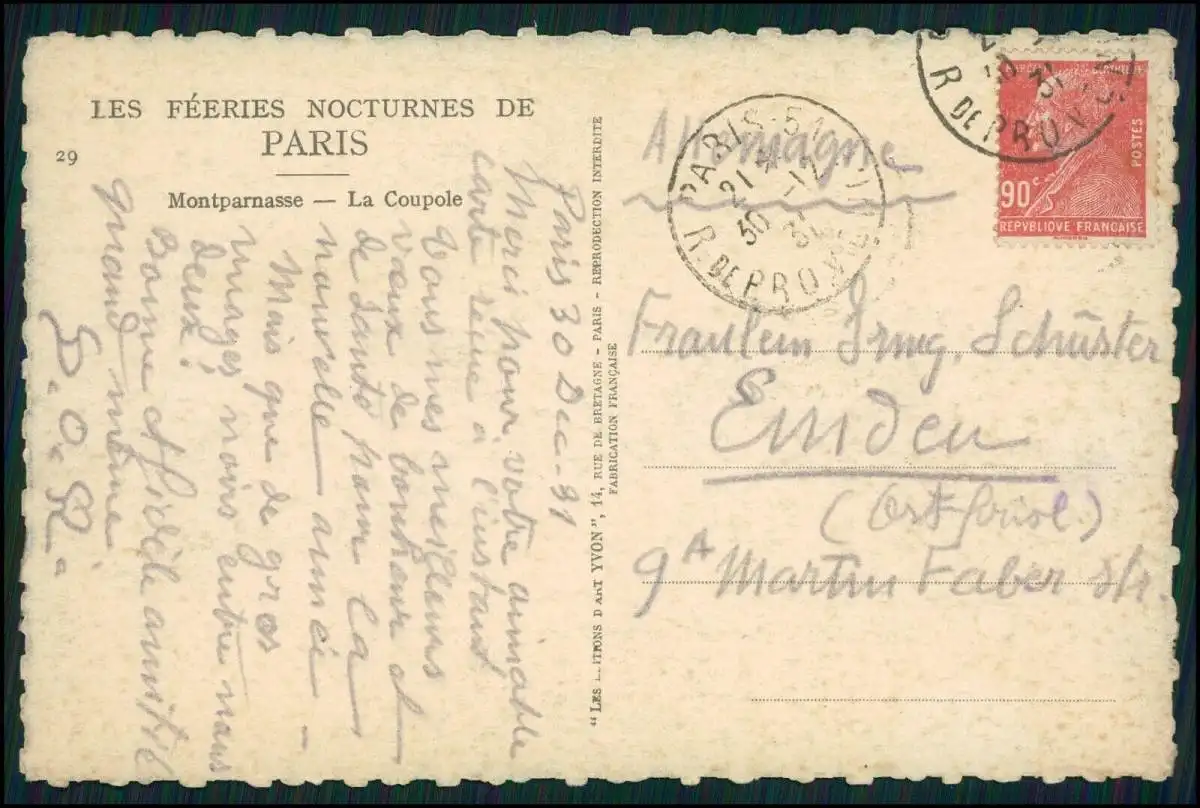 LES FÉERIES NOCTURNES DE
PARIS
29
Montparnasse — La Coupole
Paris 30 Dec-31
Merci pour votre aimable
carte reçue à l'instant
Tous mes meilleurs
vœux de bonheur et
de santé pour la
nouvelle année -
Mais que de gros
nuages noirs entre nous
deux!
Bonne et fidèle amitié
quand même
"LES ÉDITIONS D'ART YVON", 14, RUE DE BRETAGNE - PARIS - REPRODUCTION INTERDITE
FABRICATION FRANÇAISE
Allemagne
PARIS-51
21 12
30 31
R. DE PROVENCE
30 31
R. DE PROV
POSTES
90c
REPVBLIQVE FRANÇAISE
Fraulein Irmg. Schüster
Emden
(Ostfriesl.)
9A Martin Faber str.